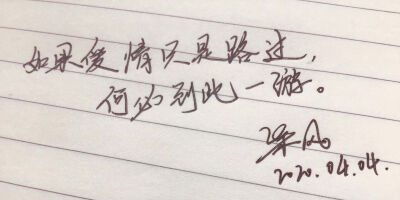 如果爱情只是路过，
何必到此一游。
梁风
2020.04.04.